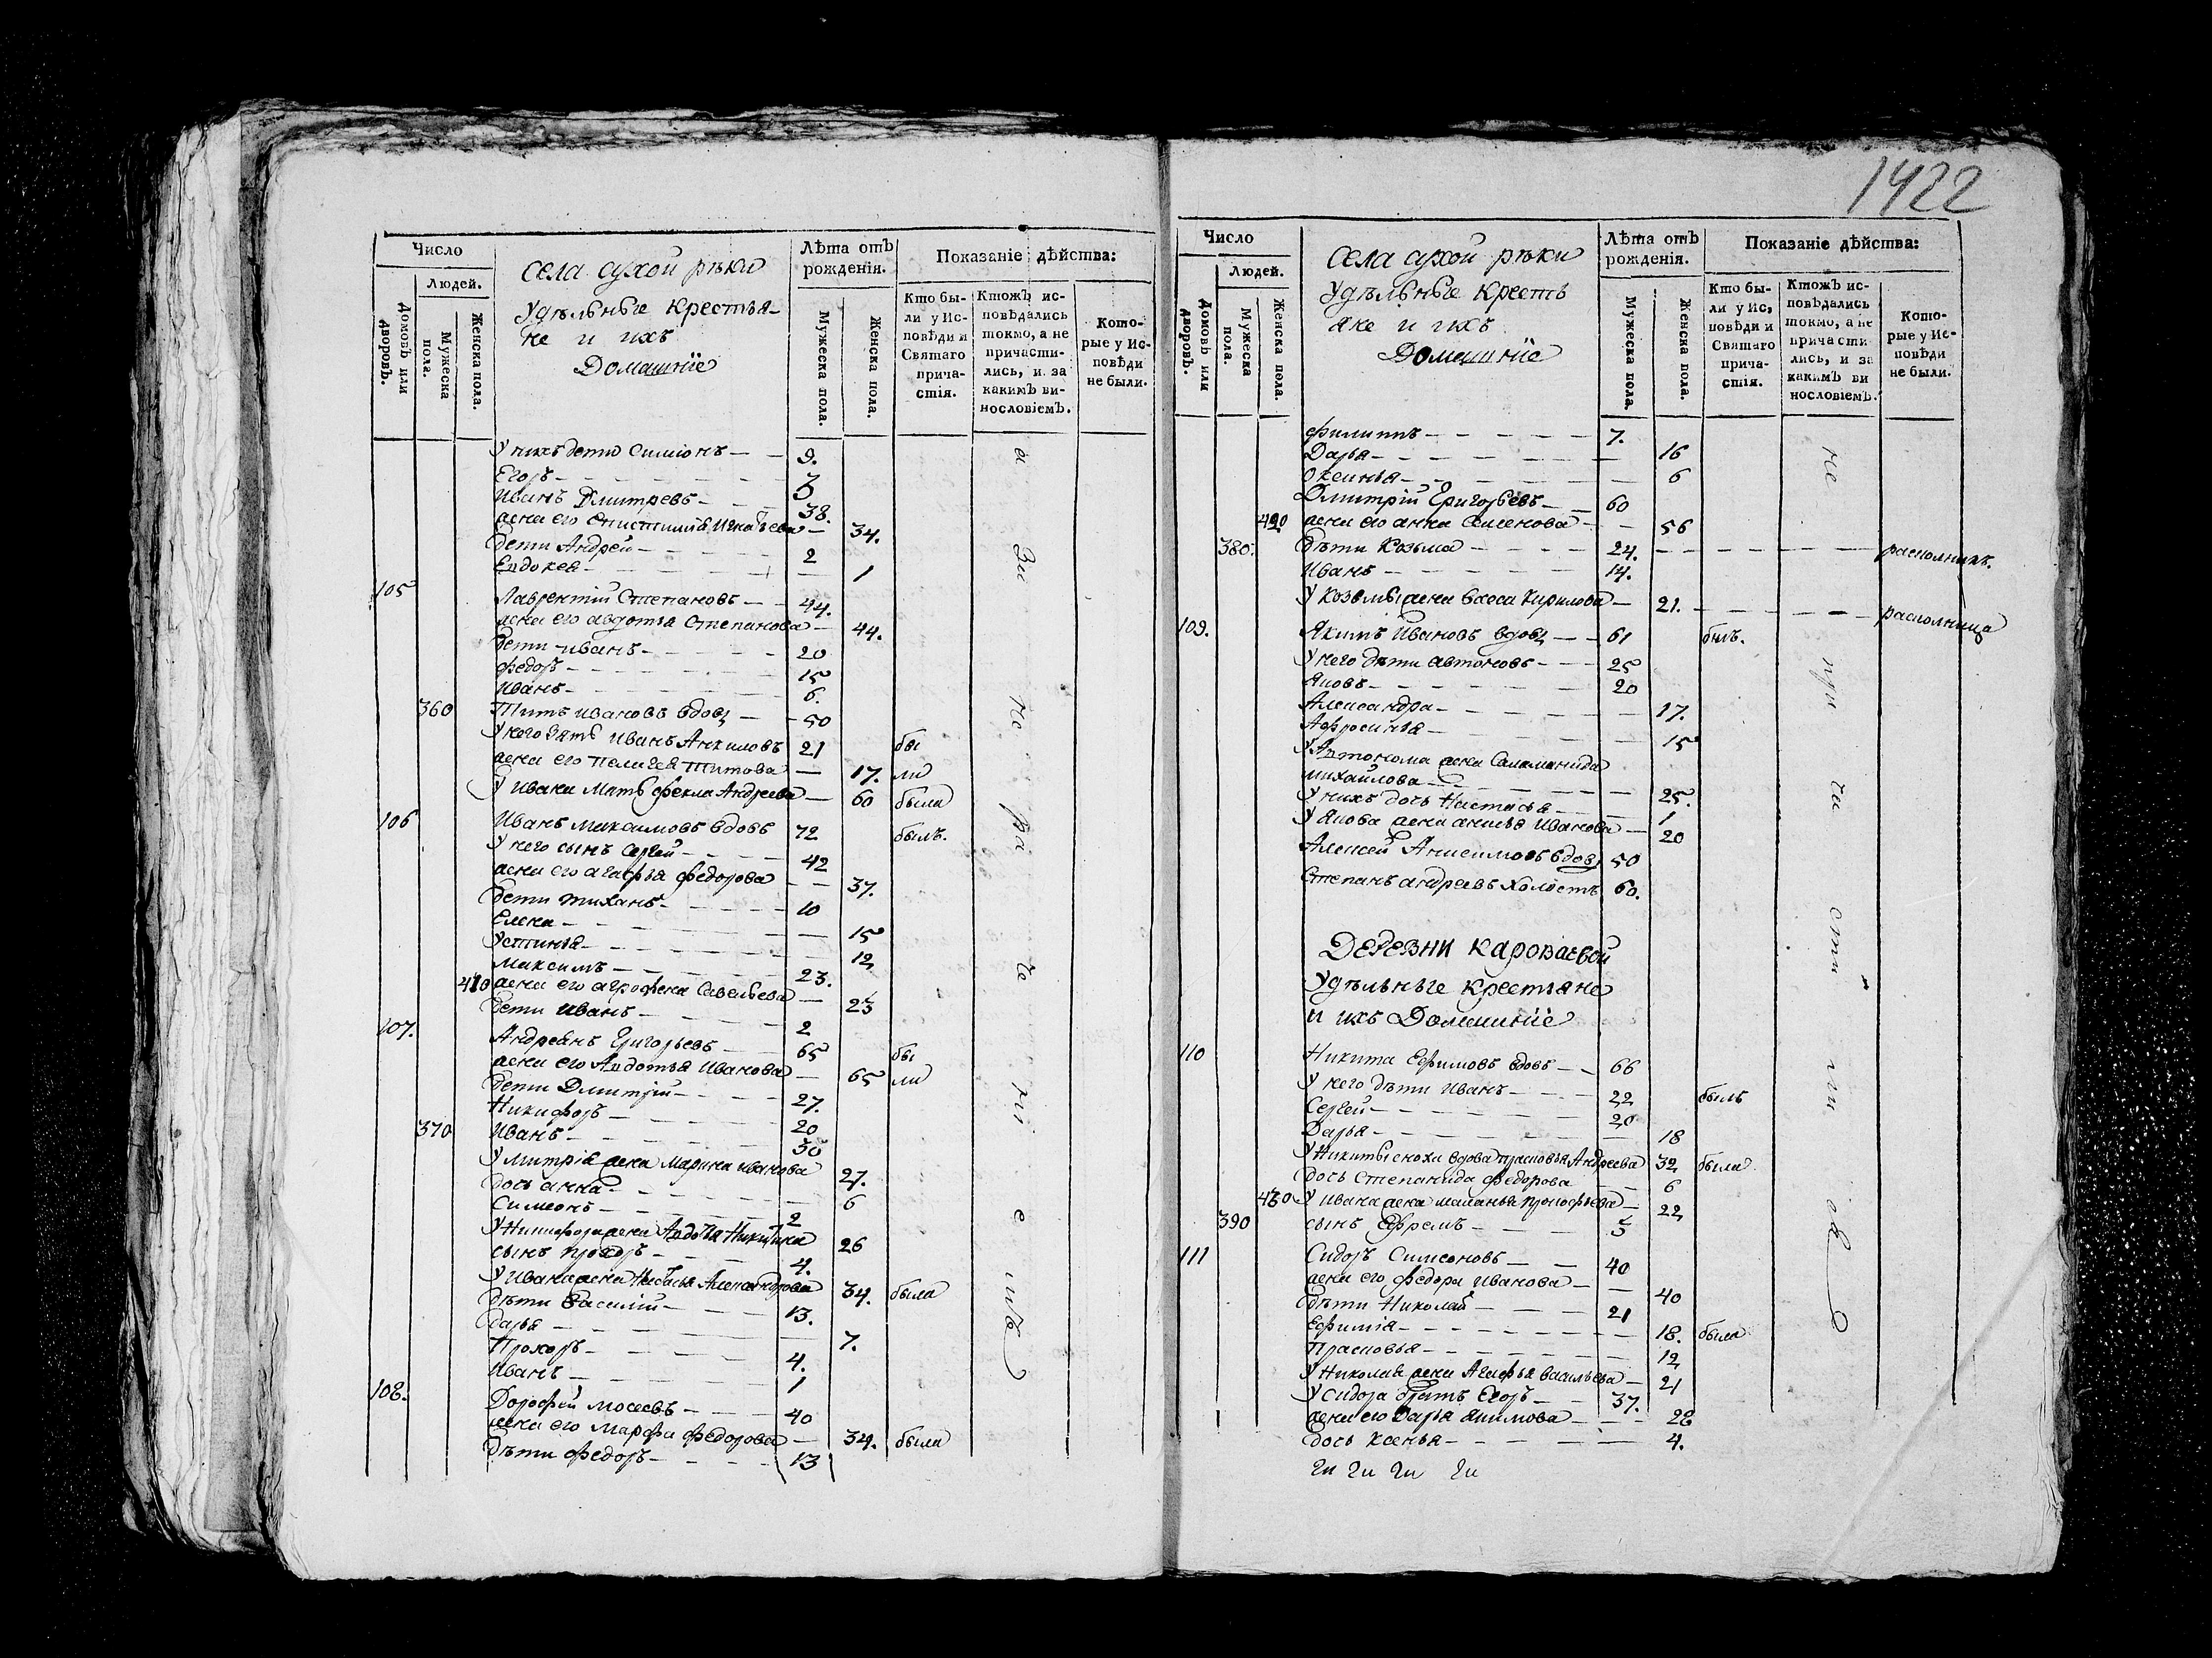 1422
Число
Людей.
Домовъ или дворовъ.
Мужеска пола.
Женска пола.
села сухой рѣки
удѣльные крестья-
не и ихъ
Домашніе
Лѣта отъ рожденія.
Мужеска пола.
Женска пола.
Показаніе дѣйства:
Кто бы-
ли у Ис-
повѣди и
Святаго
прича-
стія.
Ктожъ ис-
повѣдались
токмо, а не
причасти-
лись, и за
какимъ ви-
нословіемъ.
Кото-
рые у Ис-
повѣди
не были.
У нихъ дети Симіонъ 9.
Егоръ 3
Иванъ Дмитревъ 38.
жена его 34.
дети Андрей 2
Евдокея 1
105 Лаврентій Степановъ 44.
жена его авдотья Степанова 44.
дети иванъ 20
федоръ 15
Иванъ 6.
360 Титъ ивановъ вдовц 50
У него зять иванъ Акимовъ 21 бы
жена его пелагея титова 17. ли
У ивана мать фекла Андреева 60 была
106 Иванъ максимовъ вдовъ 72 былъ.
У него сынъ Сергей 42
жена его агафья федорова 37.
дети тиханъ 10
Елена 15
Устинья 12
максимъ 23.
410 жена его агрофена Савельева 23
дети иванъ 2
107. Андреянъ Григорьевъ 65 бы
жена его Авдотья Иванова 65 ли
дети Дмитрій 27.
Никифоръ 20
370 Иванъ 30
У митрія жена Марина иванова 27.
дочь анна 6
Симеонъ 2
У Никифора жена Авдотья Никитина 26
сынъ прохоръ 4.
У ивана жена Настасья Александрова 34. была
дѣти Василій 13.
дарья 7.
Прохоръ 4.
Иванъ 1
108. Дорофей мосеевъ 40
жена его марфа федорова 34. была
дѣти федоръ 13
Число
Людей.
Домовъ или дворовъ.
Мужеска пола.
Женска пола.
села сухой рѣки
удѣльные кресть
яне и ихъ
Домашніе
Лѣта отъ рожденія.
Мужеска пола.
Женска пола.
Показаніе дѣйства:
Кто бы-
ли у Ис,
повѣди и
Святаго
прича-
стія.
Ктожъ ис-
повѣдались
токмо, а не
прича сти
лись, и за
какимъ ви
нословіемъ.
Кото-
рые у Ис-
повѣди
не были.
филиппъ 7.
Дарья 16
Оксинья 6
Дмитрій Григорьевъ 60
420 жена его анна Семенова 56
380. дѣти Козьма 24. раскольникъ.
Иванъ 14.
У козьмы жена васса Кирилова 21. раскольница
109. Якимъ Ивановъ вдовц 61 былъ.
У него дѣти автоновъ 25
Яковъ 20
Александра 17.
Афросинья 15
У Автонома жена Саламанида
михайлова 25.
У нихъ дочь Настасья 1
У Якова жена анисья Иванова 20
Алексей Анисимовъ вдовъ 50
Степанъ андреевъ холостъ 60.
не при ча сти ли св
ДЕРЕВНИ КАРОВАЕВОЙ
Удѣльные крестьяне
и ихъ Домашніе
110 Никита Ефимовъ вдовъ 66
У него дѣти иванъ 22 былъ
Сергей 20
Дарья 18
У Никиты сноха вдова прасковья Андреева 32 была
дочь Степанида федорова 6
430 У ивана жена маланья прокофьева 22
390 сынъ Ефремъ 3
111 Сидоръ Симеоновъ 40
жена его федора иванова 40
дѣти Николай 21
Ефимія 18. была
Прасковья 12
У Николая жена Агафья васильева 21
У сидора братъ Егоръ 37.
жена его Дарья якимова 28
дочь ксенья 4.